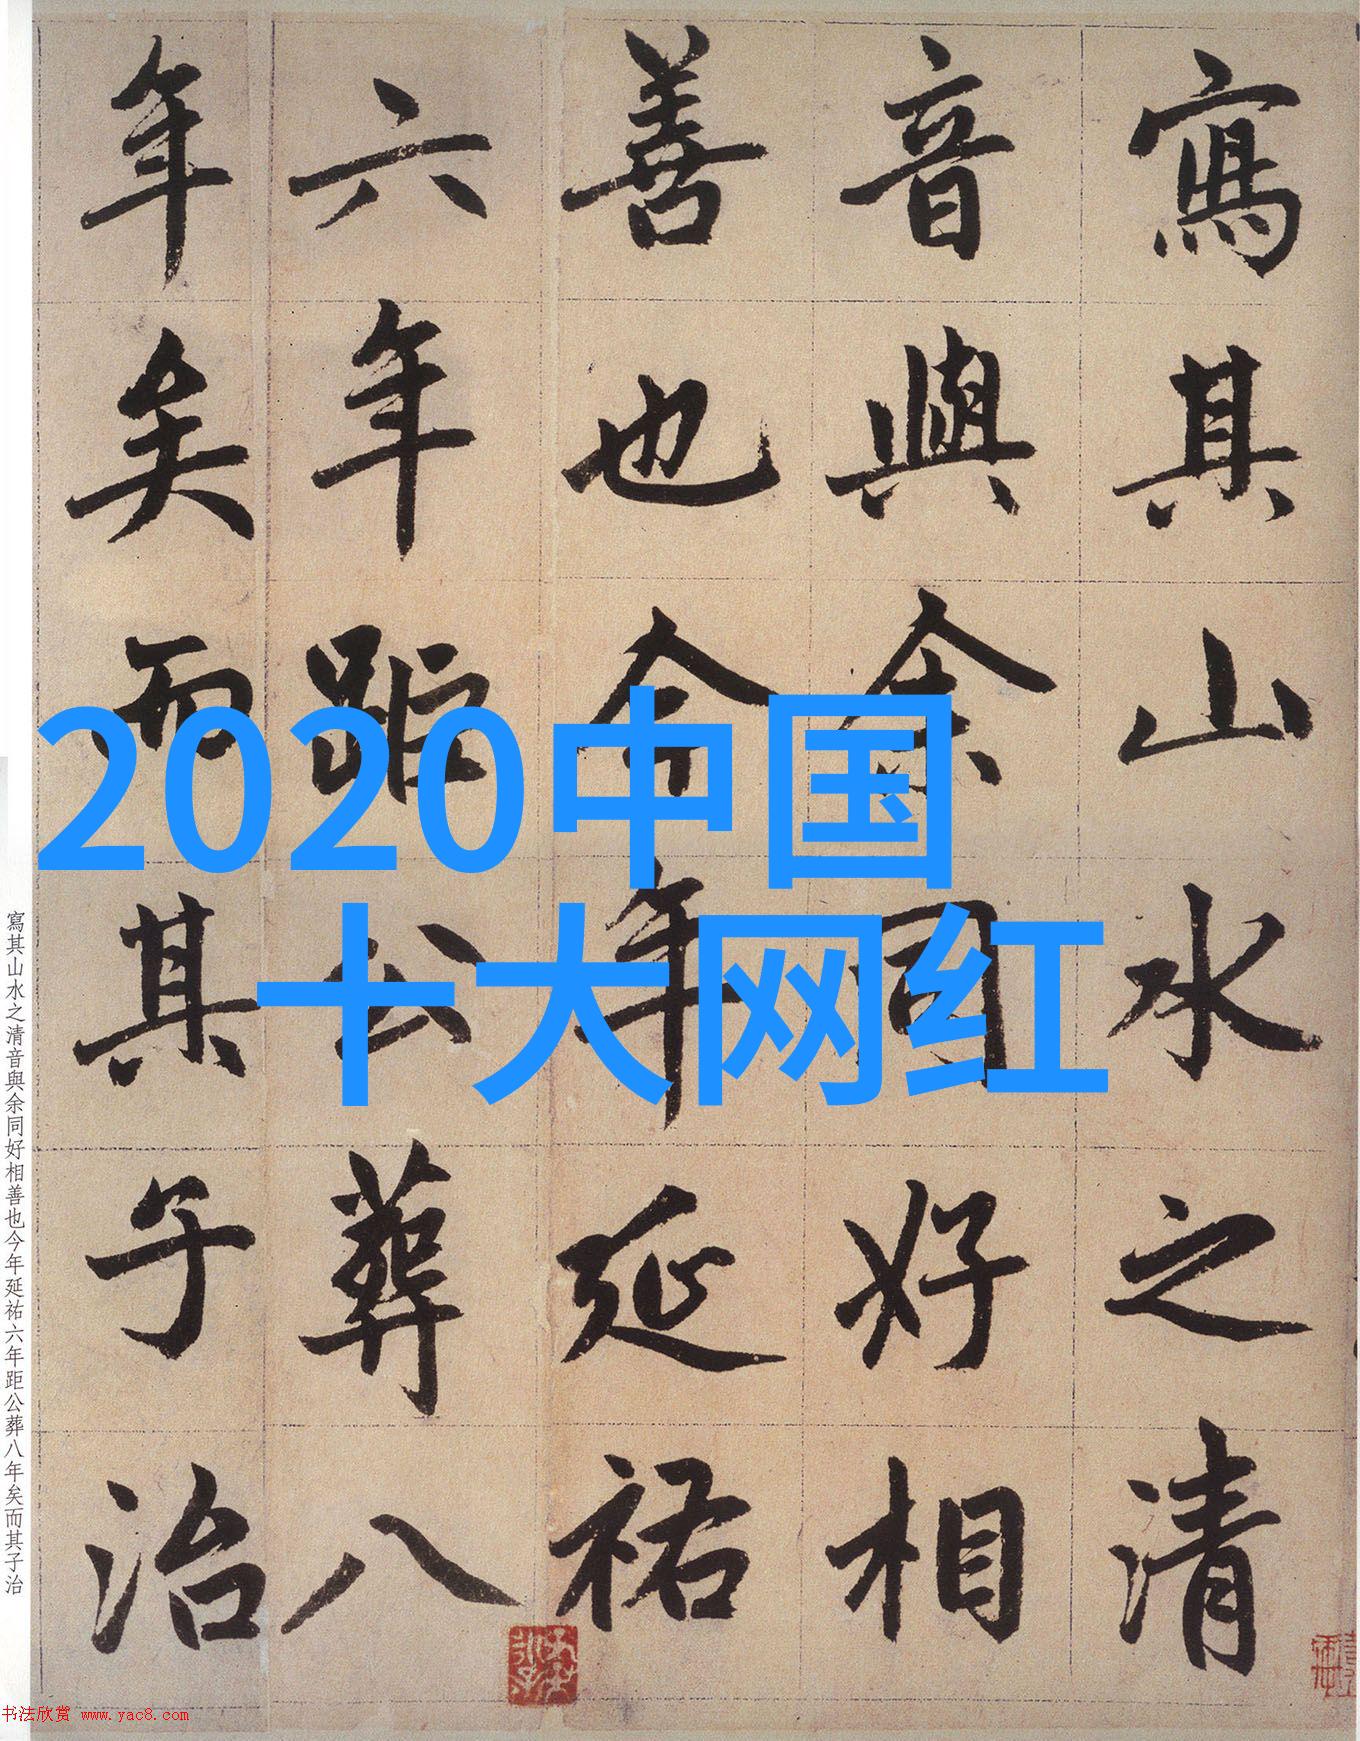 寫其山水之清
音與余同好相
善也今年延祐
六年距公葬八
年矣而其子治
2020中国
十大网红
寫其山水之清音與余同好相善也今年延祐六年距公葬八年矣而其子治
书法欣赏 www.yac8.com